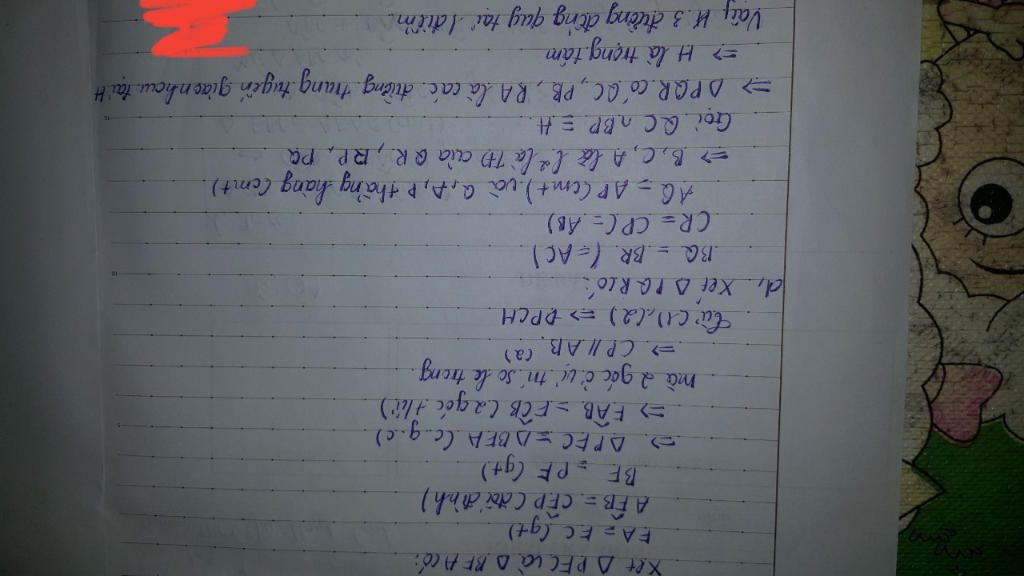 Xét Δ PEC và Δ BEA có:
EA = EC (gt)
AÊB = CÊP (đối đỉnh)
BE = PE (gt)
=> Δ PEC = Δ BEA (c.g.c)
=> EÂB = EĈB (2 góc t/ứ)
mà 2 góc ở vị trí so le trong
=> CP // AB (2)
Từ (1), (2) => ĐPCM
d, Xét Δ PQR có:
BQ = BR (= AC)
CR = CP (= AB)
AQ = AP (cmt) và Q, A, P thẳng hàng (cmt)
=> B, C, A lần l² là TĐ của QR, RP, PQ
Gọi QC ∩ BP ≡ H
=> Δ PQR có QC, PB, RA là các đường trung tuyến giao nhau tại H
=> H là trọng tâm
Vậy H 3 đường đồng quy tại 1 điểm